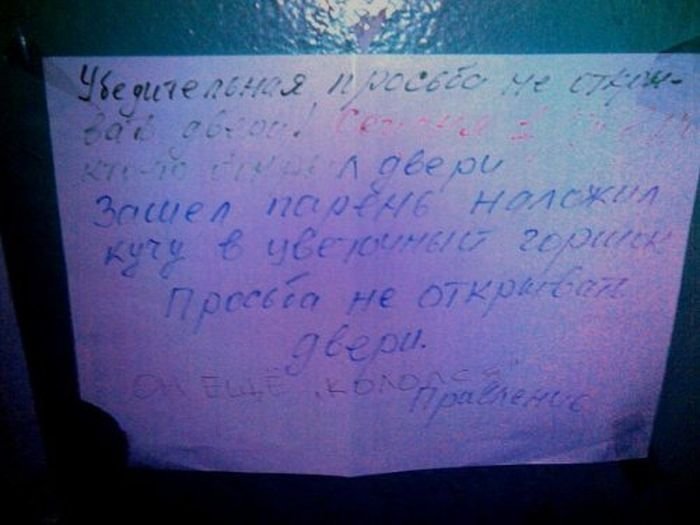 Убедительная просьба не откры-
вать двери! Сегодня
кто-то открыл двери
Зашел парень наложил
кучу в цветочный горшок
Просьба не открывать
двери.
ОН ЕЩЁ „КОЛОЛСЯ"
Правление